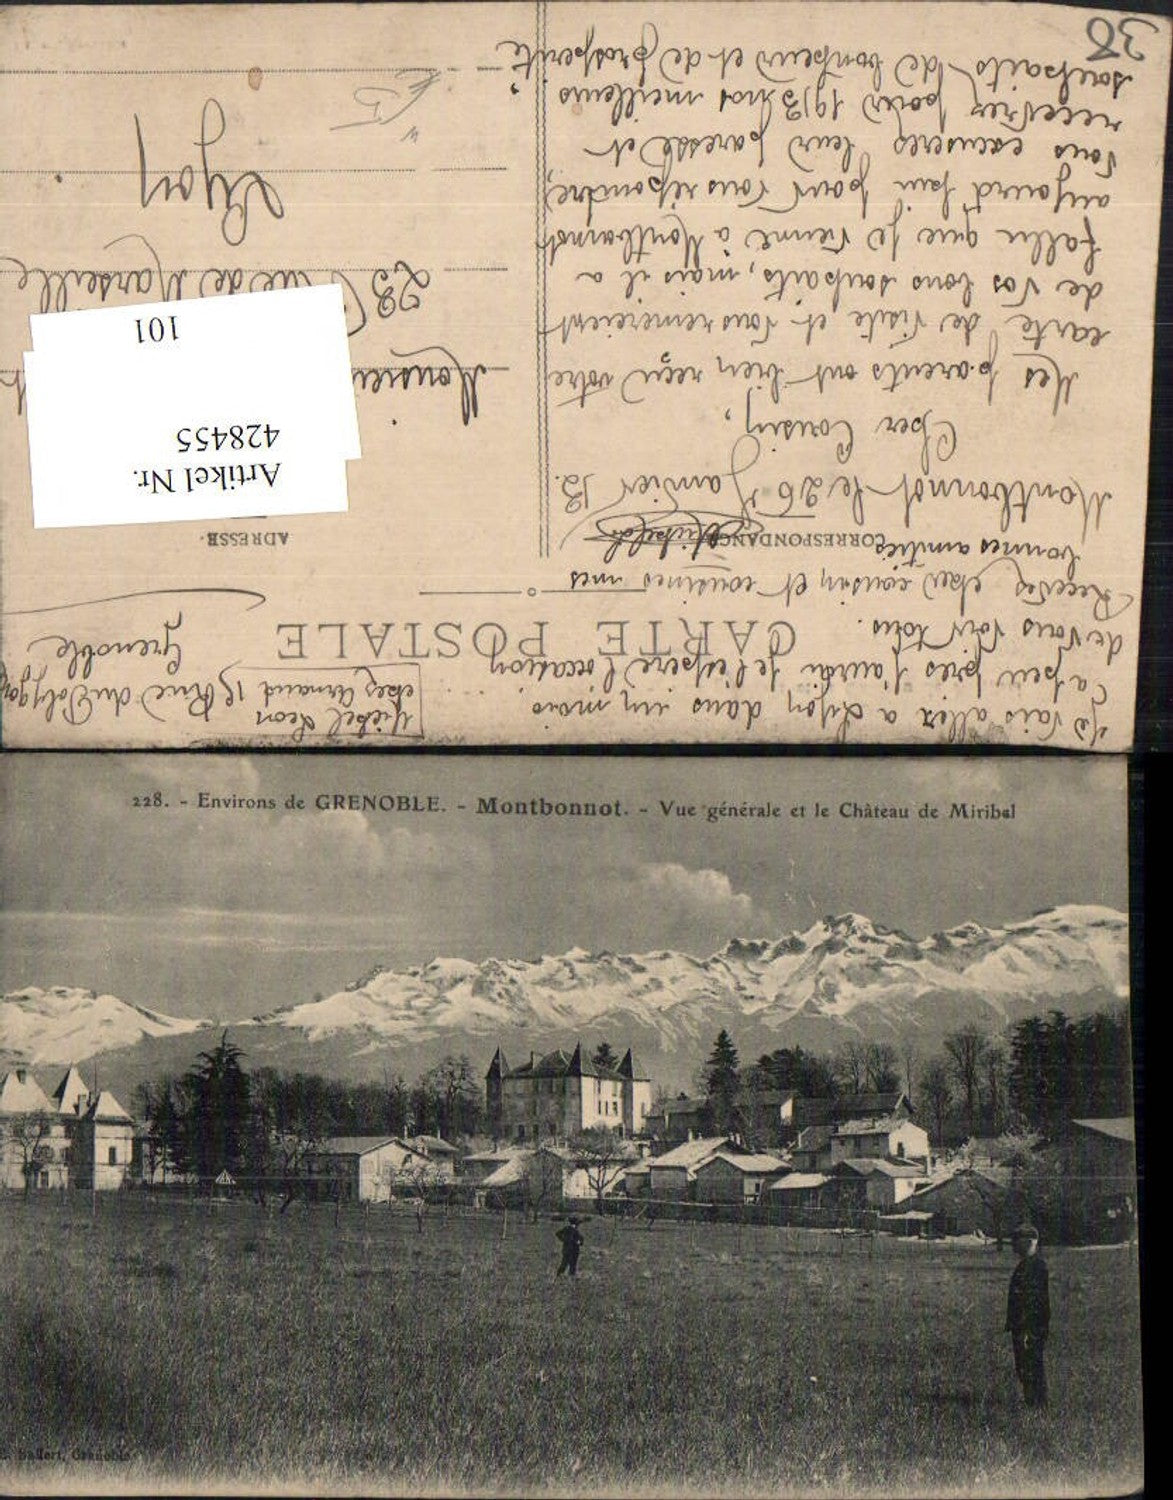 Je vais aller a Lyon dans un mois
a peu près j'aurai je l'espère l'occasion
de vous voir tous.
Recevez cher cousin et cousines mes
bonnes amitiés
Michel Leon
chez Arnaud 15 Rue du Polygone
Grenoble
CARTE POSTALE
CORRESPONDANCE
ADRESSE
Montbonnot le 26 Janvier 13.
Cher Cousin,
Mes parents ont bien reçu votre
carte de visite et vous remercient
de vos bons souhaits, mais il a
fallu que je vienne à Montbonnot
aujourd'hui pour vous répondre,
vous excuserez leur paresse et
recevrez pour 1913 nos meilleurs
souhaits de bonheur et de prospérité.
38
Monsieur
23 Rue de Marseille
Lyon
Artikel Nr.
428455
101
228. - Environs de GRENOBLE. - Montbonnot. - Vue générale et le Château de Miribel
Baffert, Grenoble